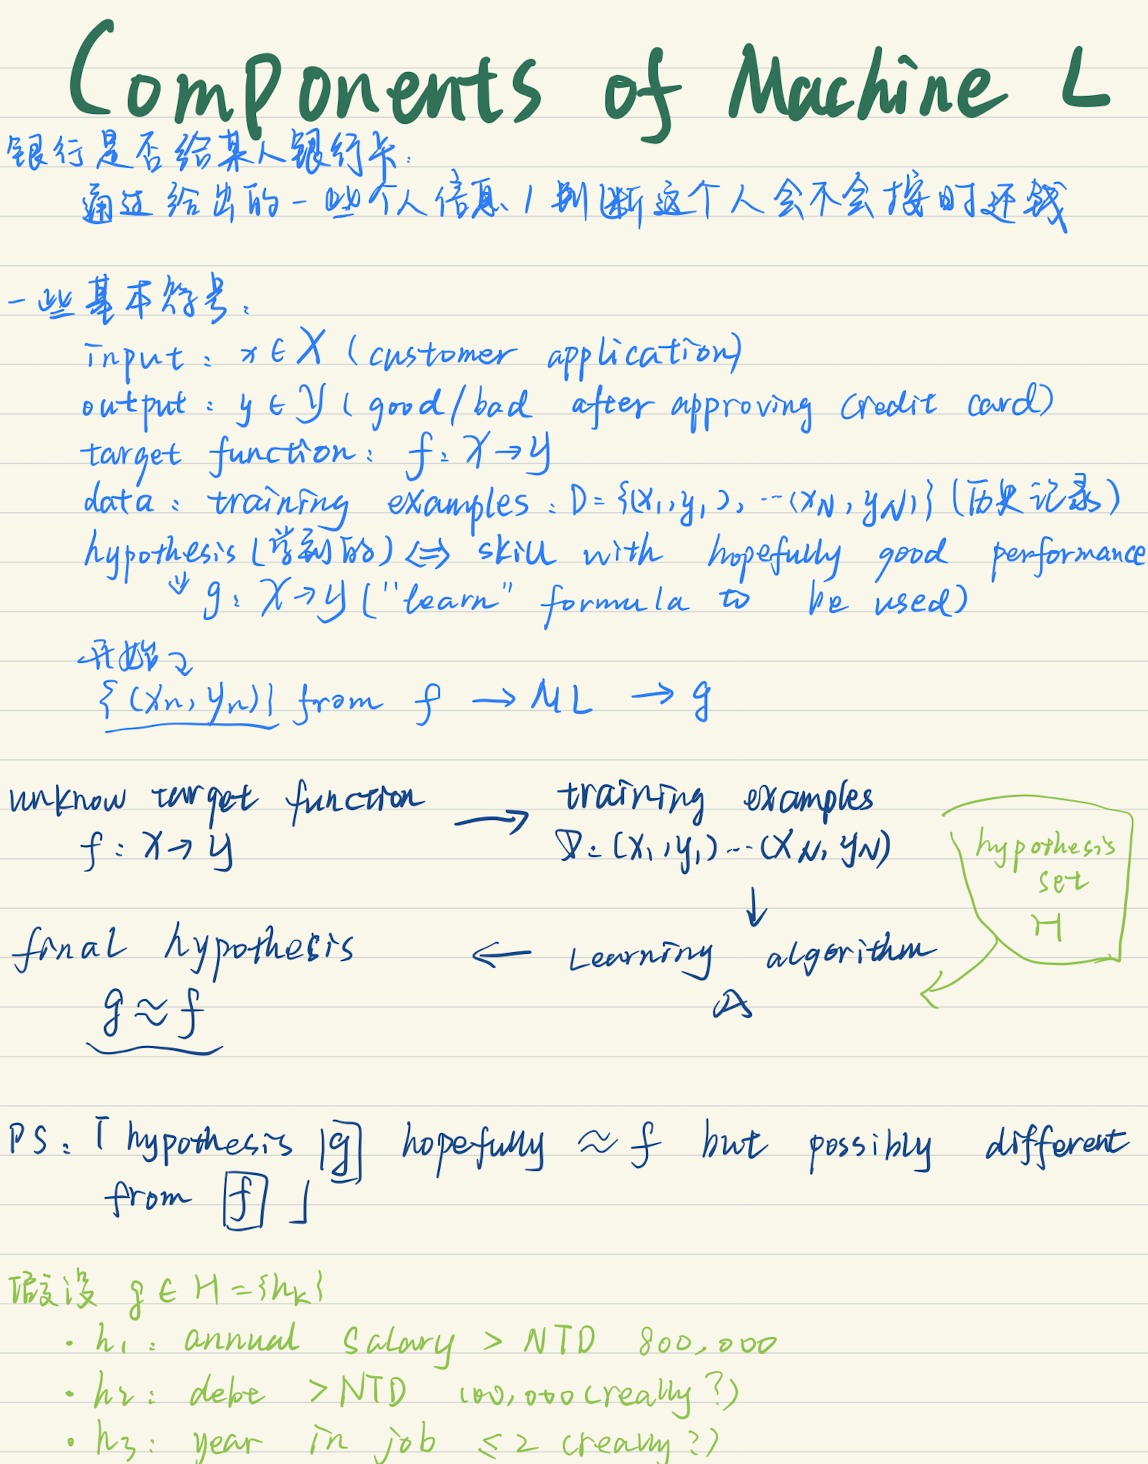 Components of Machine L
银行是否给某人银行卡:
通过给出的一些个人信息,判断这个人会不会按时还钱
一些基本符号:
input: x∈X (customer application)
output: y∈Y (good/bad after approving credit card)
target function: f: X→Y
data: training examples: D={(x₁,y₁), ···(xN, yN)} (历史记录)
hypothesis (学到的) ⇔ skill with hopefully good performance
↓ g: X→Y ("learn" formula to be used)
开始
{(xn, yn)} from f → ML → g
unknow target function → training examples
f: X→Y D: (x₁,y₁)···(xN, yN)
hypothesis
set
H
↓
final hypothesis ← Learning algorithm
g≈f A
PS:「hypothesis g hopefully ≈ f but possibly different
from f」
假设 g∈H={hk}
· h₁: annual salary > NTD 800,000
· h₂: debt > NTD 100,000 (really?)
· h₃: year in job ≤ 2 (really?)